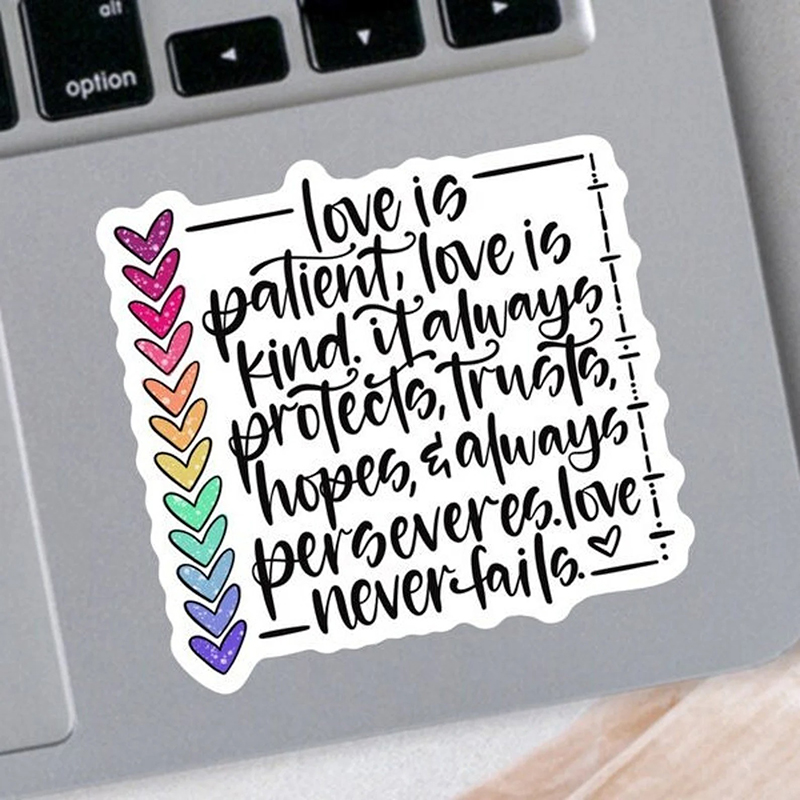 alt
option
love is
patient, love is
kind. it always
protects, trusts,
hopes, & always
perseveres. love
never fails.